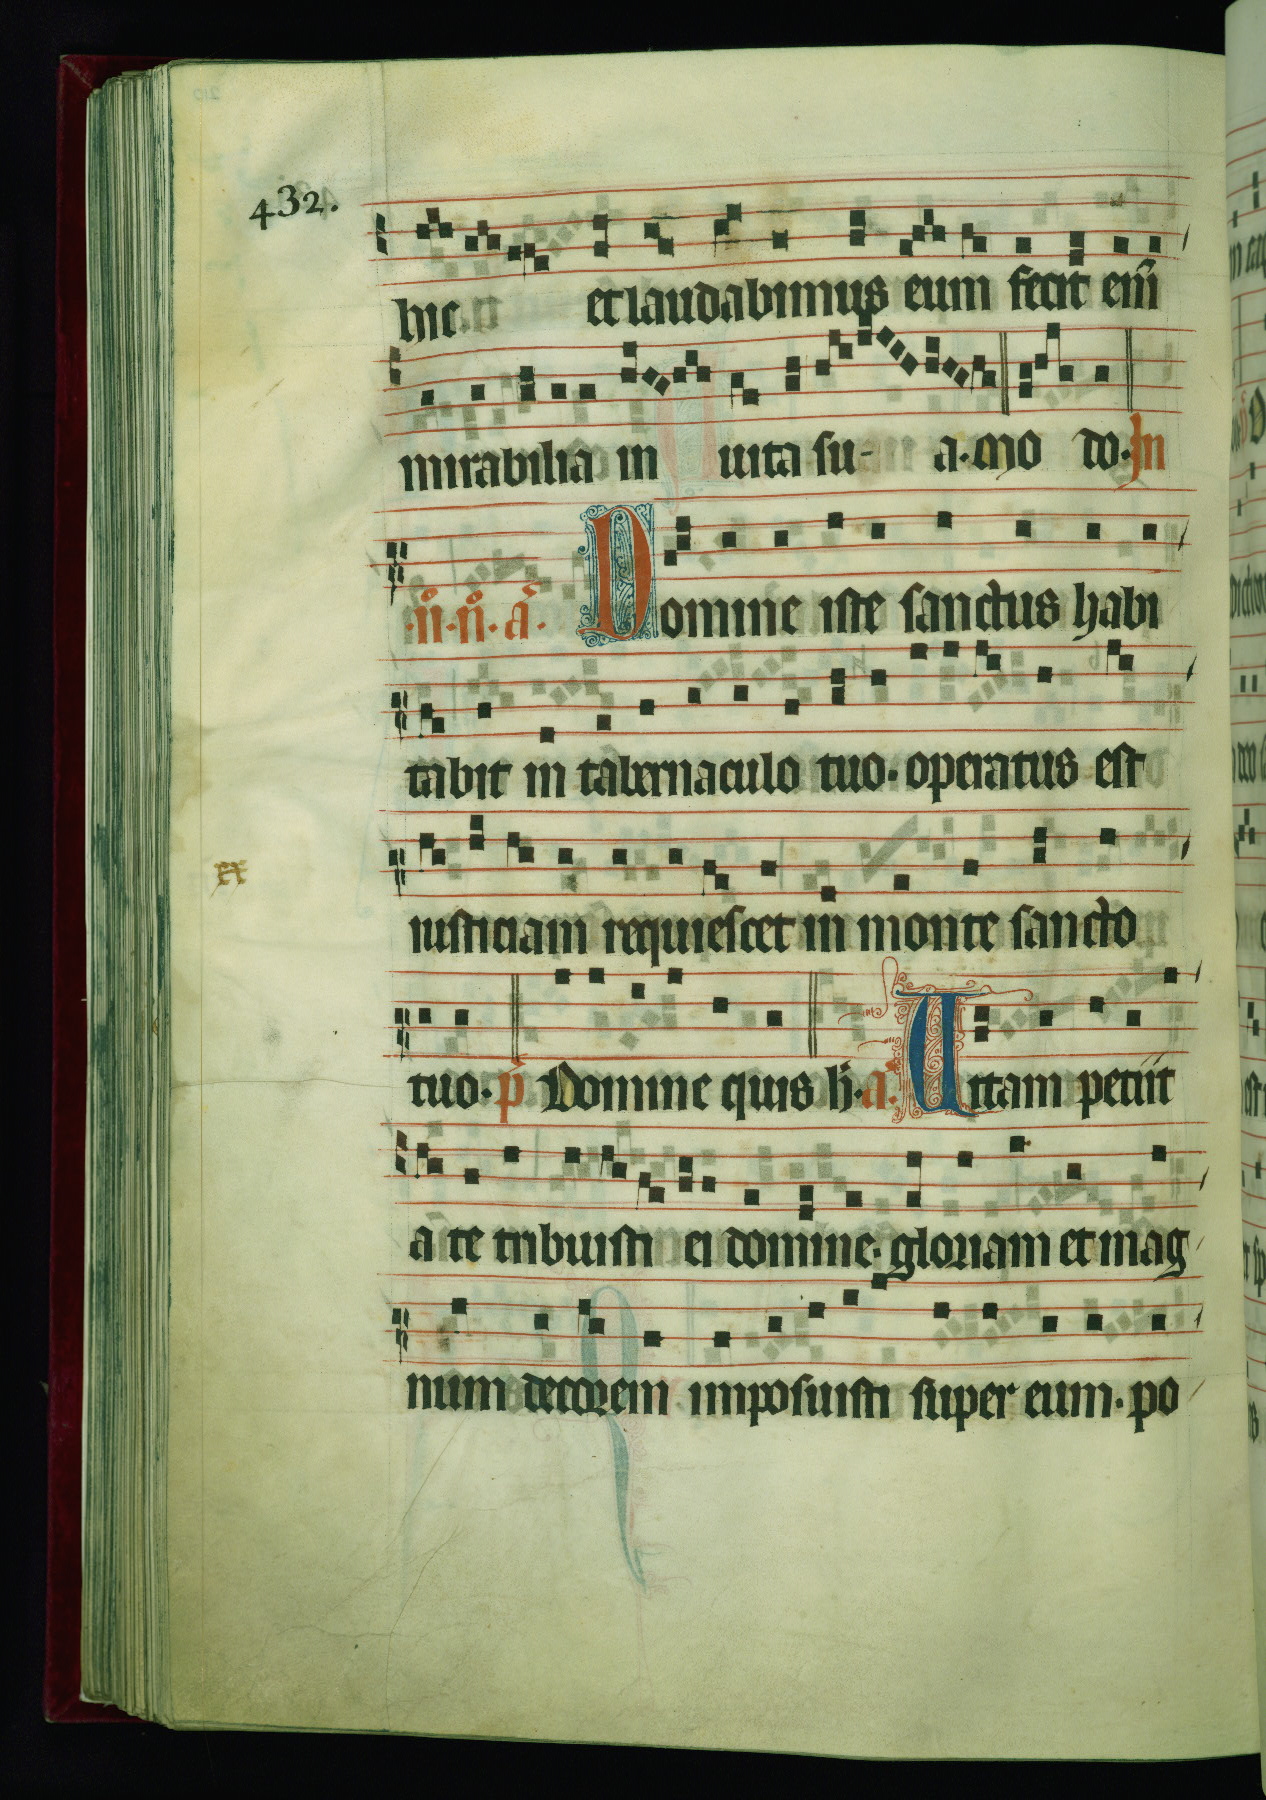 432.
hic. et laudabimus eum fecit eni̅
mirabilia in uita su- a. mo do. In
.iiº. nº. a̅. Domine iste sanctus habi
tabit in tabernaculo tuo. operatus est
iusticiam requiescet in monte sancto
tuo. p̅ Domine quis h̅. a̅. Uitam petiit
a te tribuisti ei domine. gloriam et mag
num decorem imposuisti super eum. po